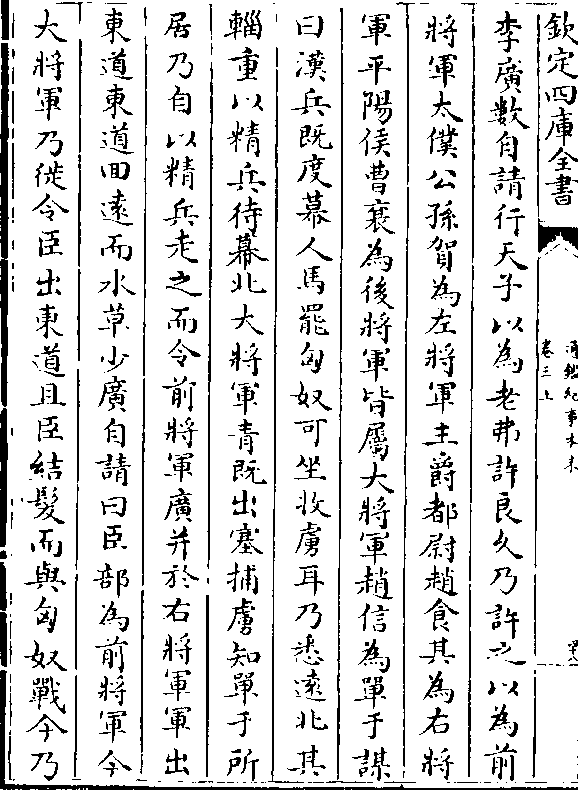 欽定四庫全書
通鑑紀事本末
卷三上
李廣數自請行天子以為老弗許良久乃許之以為前
將軍太僕公孫賀為左將軍主爵都尉趙食其為右將
軍平陽侯曹襄為後將軍皆屬大將軍趙信為單于謀
曰漢兵既度幕人馬罷匈奴可坐收虜耳乃悉逺北其
輜重以精兵待幕北大將軍青既出塞捕虜知單于所
居乃自以精兵走之而令前將軍廣并於右將軍軍出
東道東道回逺而水草少廣自請曰臣部為前將軍今
大將軍乃徙令臣出東道且臣結髮而與匈奴戰今乃